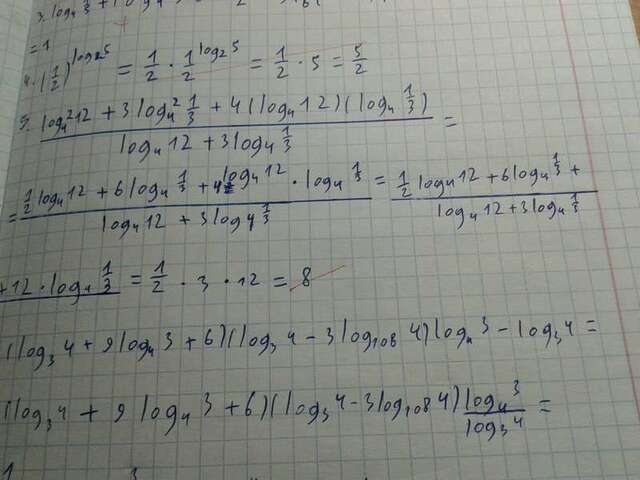 3. log₄ 1/3 + log₄
= 1
4. (1/2)^(log₂5) = 1/2 · 1/2^(log₂ 5) = 1/2 · 5 = 5/2
5. (log₄² 12 + 3 log₄² 1/3 + 4 (log₄ 12)(log₄ 1/3)) / (log₄ 12 + 3 log₄ 1/3) =
= (1/2 log₄ 12 + 6 log₄ 1/3 + 4^(log₄ 12) · log₄ 1/3) / (log₄ 12 + 3 log₄ 1/3) = (1/2 log₄ 12 + 6 log₄ 1/3 +) / (log₄ 12 + 3 log₄ 1/3)
+ 12 · log₄ 1/3 = 1/2 · 3 · 12 = 8
(log₃ 4 + 9 log₄ 3 + 6)(log₃ 4 - 3 log₁₀₈ 4) log₄ 3 - log₃ 4 =
(log₃ 4 + 9 log₄ 3 + 6)(log₃ 4 - 3 log₁₀₈ 4) log₄ 3 / log₃ 4 =